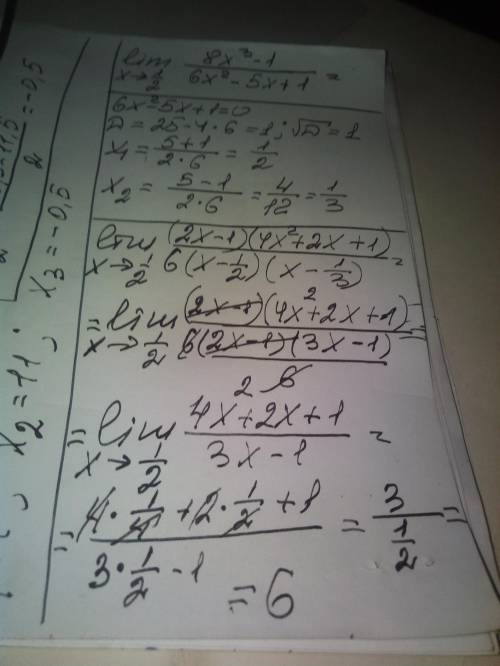 lim x→1/2 (8x³-1)/(6x²-5x+1) =
6x²-5x+1=0
D = 25-4·6 = 1; √D = 1
x₁ = (5+1)/(2·6) = 1/2
x₂ = (5-1)/(2·6) = 4/12 = 1/3
lim x→1/2 ((2x-1)(4x²+2x+1))/(6(x-1/2)(x-1/3)) =
= lim x→1/2 ((2x-1)(4x²+2x+1))/(6(2x-1)(3x-1)/6) =
= lim x→1/2 (4x+2x+1)/(3x-1) =
= (4·1/4+2·1/2+1)/(3·1/2-1) = 3/(1/2) =
= 6
x₂ = 11; x₃ = -0,5
= -0,5